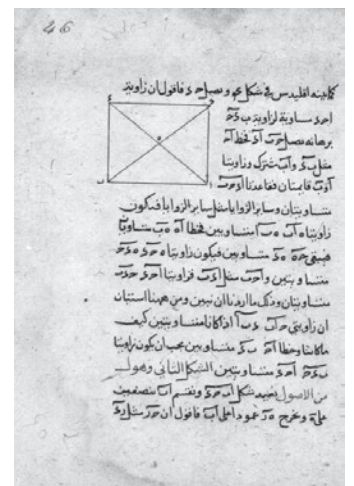 46
كما بينه اقليدس في شكل ونصل حد فاقول ان زاوية
احد مساوية لزاوية بدح
برهانه نصل حب اد فخطا اح
مثل بد و اب مشترك وزاويتا
ا ب قائمتان فقاعدتا اد حب
متساويتان وساير الزوايا مثل ساير الزوايا فتكون
زاويتا هاب هبا متساويتين فخطا اه هب متساويان
فيبقى حه هد متساويين فيكون زاويتا هحد هدح
متساويتين و احب مثل ادب فزاويتا احد حدب
متساويتان وذلك ما اردنا ان نبين ومن ههنا استبان
ان زاويتي حاب دبا اذا كانتا متساويتين كيف
ما كانتا وخطا اح بد متساويين يجب ان يكون زاويتا
بدح احد متساويتين الشكل الثاني وهو ل
من الاصول نعيد شكل ابحد ونقسم اب بنصفين
على ه ونخرج هز عمودا على اب فاقول ان حز مثل زد